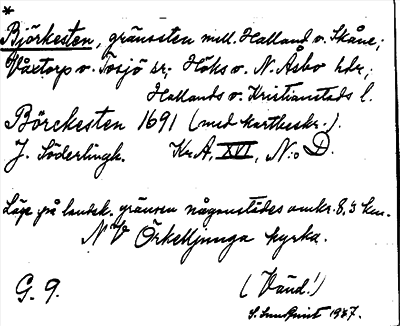 *
Björkesten, gränssten mell. Halland o. Skåne;
Våxtorp o. Tosjö sr; Höks o. N. Åsbo hdr;
Hallands o. Kristianstads l.
Börckesten 1691 (med kartbeskr.).
J. Söderlingk. Kr.A, XVI, N:o D.
Läge på landsk. gränsen någonstädes omkr. 8,5 km.
NV Örkelljunga kyrka.
G. 9. (Vänd!)
S. Lundquist 1937.